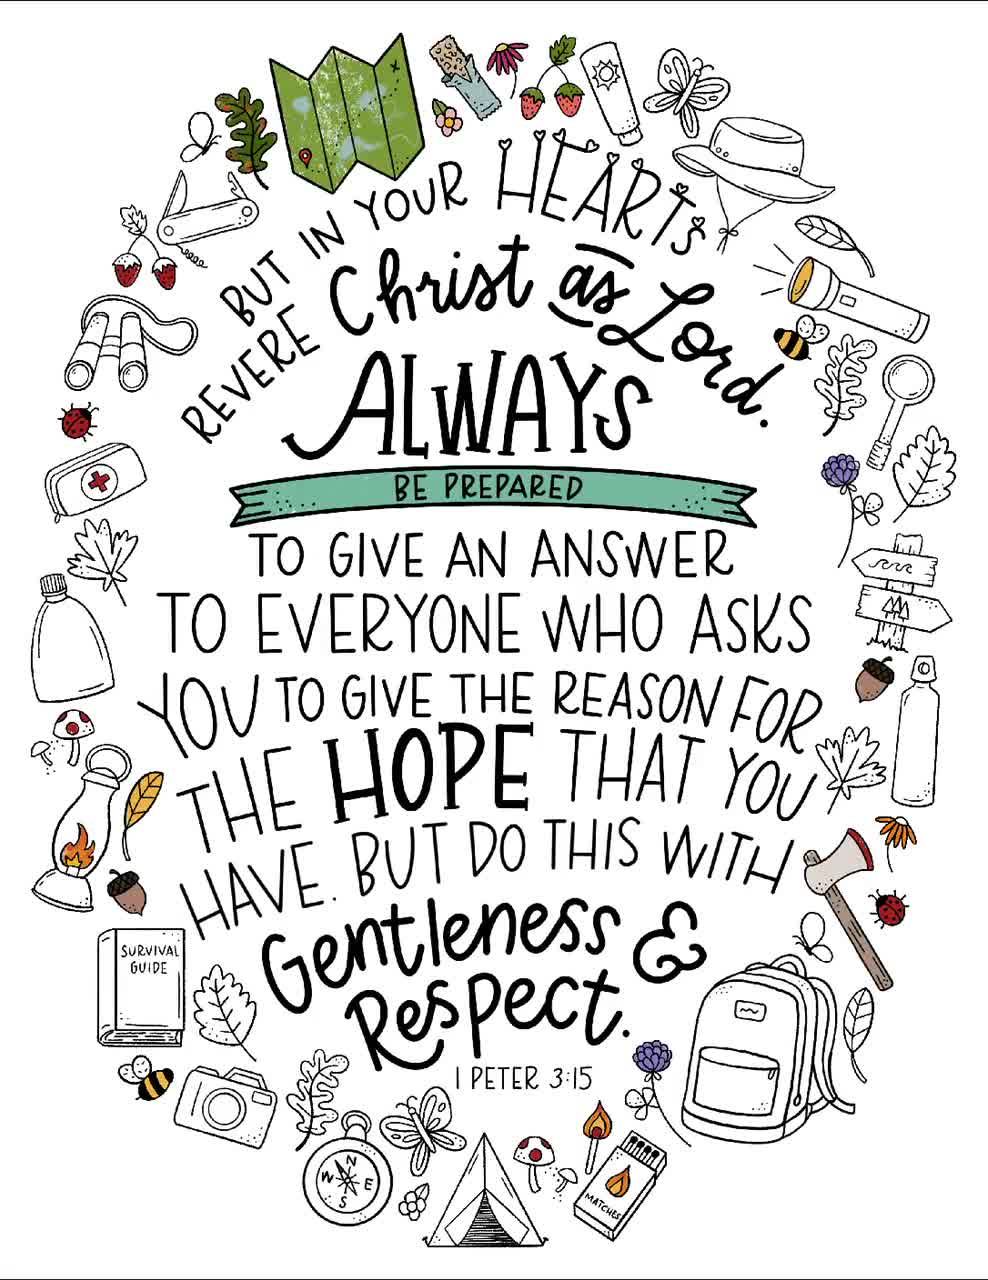 BUT IN YOUR HEARTS
REVERE Christ as Lord.
ALWAYS
BE PREPARED
TO GIVE AN ANSWER
TO EVERYONE WHO ASKS
YOU TO GIVE THE REASON FOR
THE HOPE THAT YOU
HAVE. BUT DO THIS WITH
Gentleness &
Respect.
1 PETER 3:15
SURVIVAL
GUIDE
N
W E
S
MATCHES